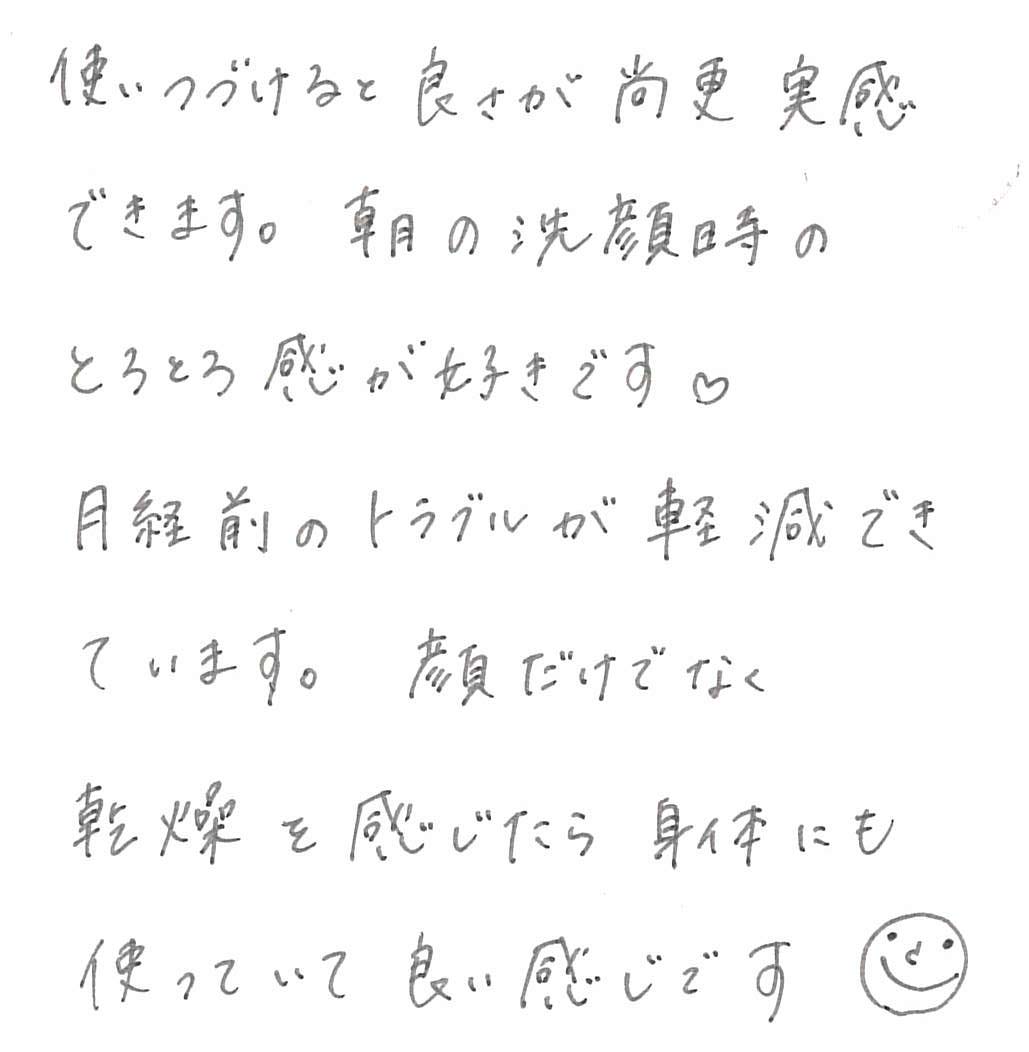 使いつづけると良さが尚更実感
できます。朝の洗顔時の
とろとろ感が好きです♡
月経前のトラブルが軽減でき
ています。顔だけでなく
乾燥を感じたら身体にも
使っていて良い感じです